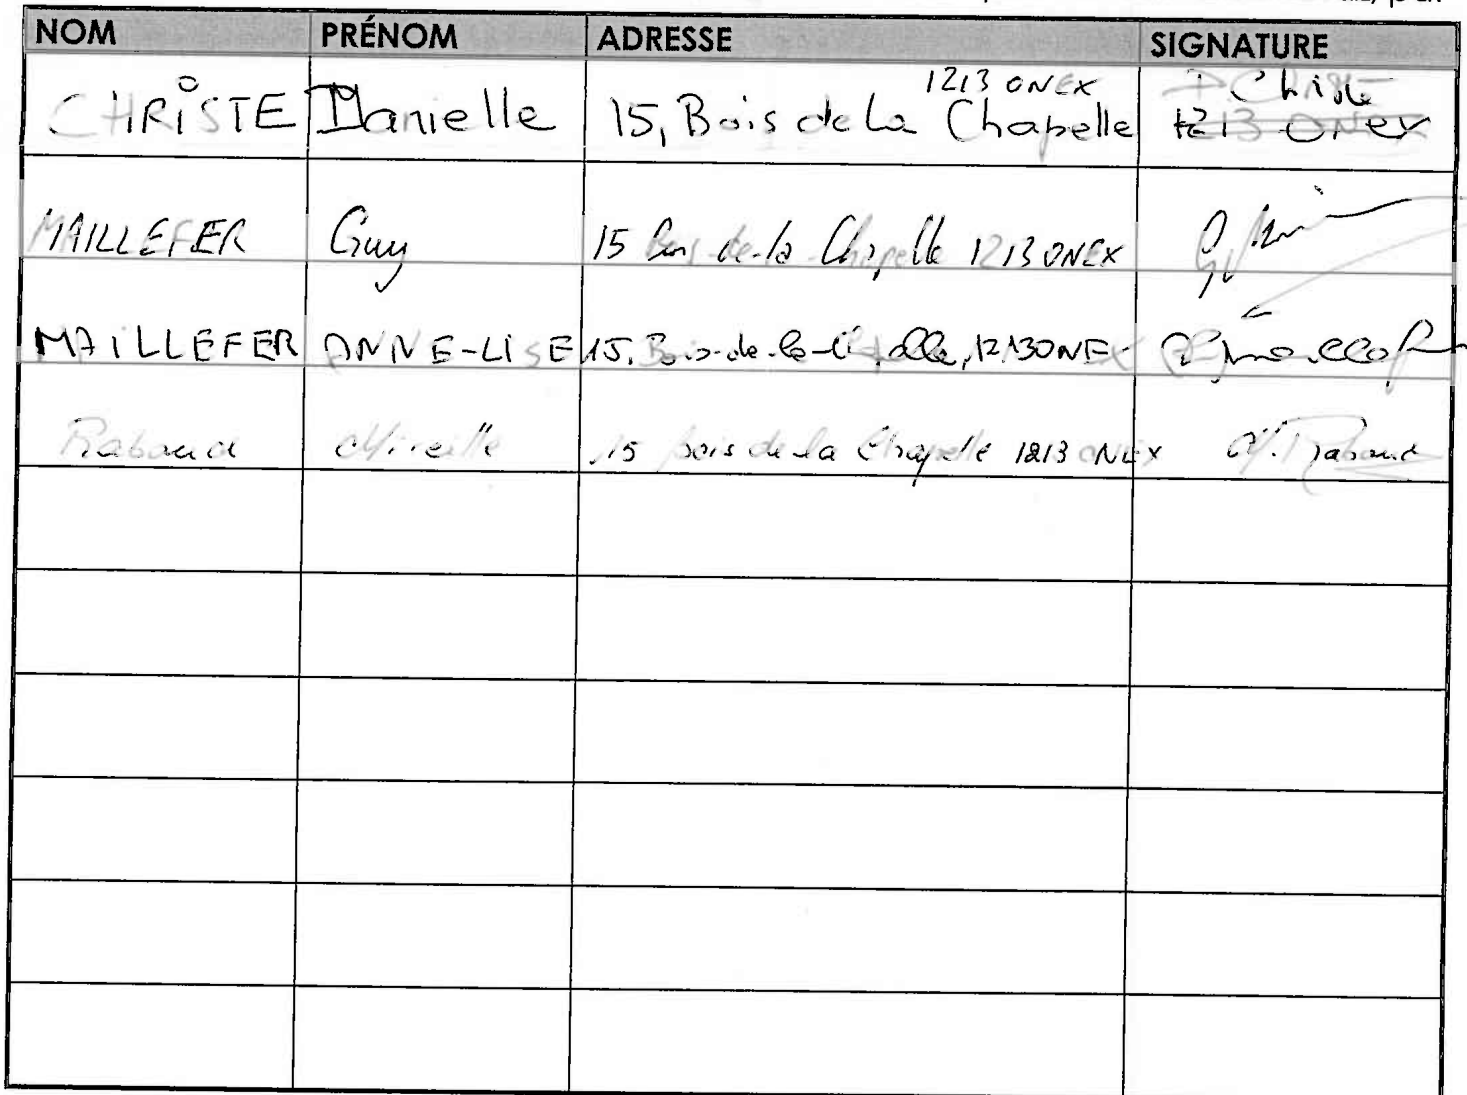 NOM PRÉNOM ADRESSE SIGNATURE
1213 ONEX
CHRISTE Danielle 15, Bois de La Chapelle D. Christe
1213 Onex
MAILLEFER Guy 15 Bois-de-la Chapelle 1213 ONEX
MAILLEFER ANNE-LISE 15, Bois-de-la-Chapelle, 1213 ONEX
Rabaud Mireille 15 bois de la Chapelle 1213 ONEX M. Rabaud